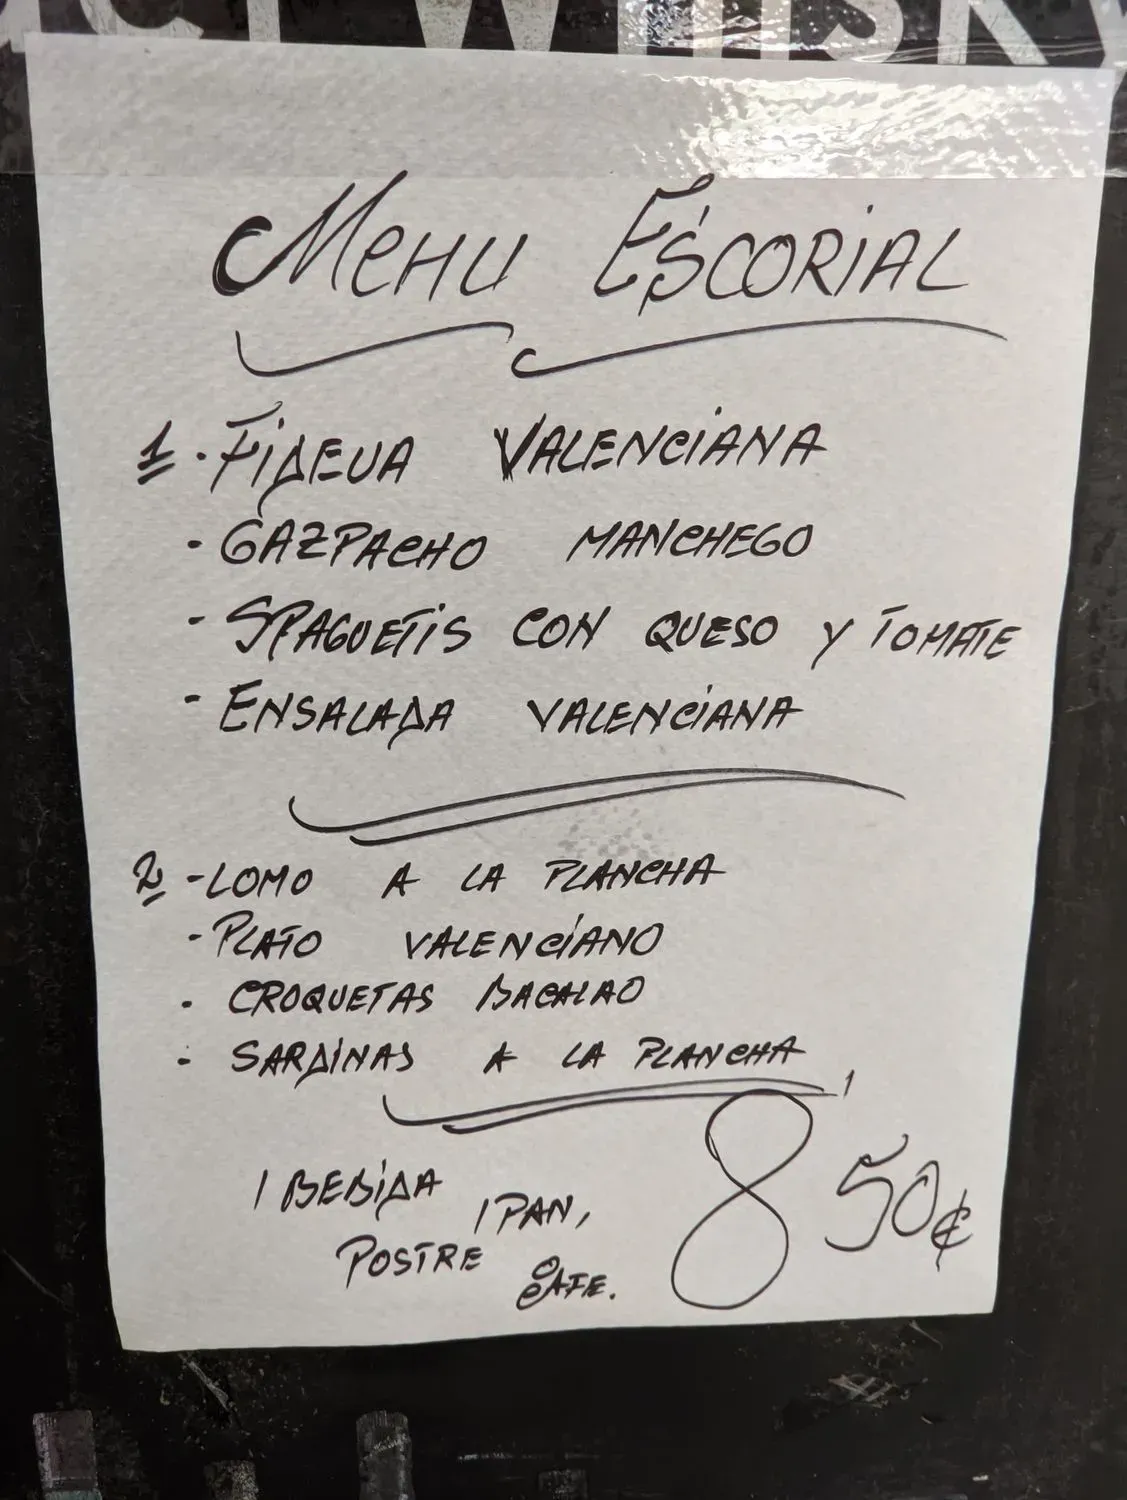 WHISKY
Menu ESCORIAL
1 · FIDEUA VALENCIANA
- GAZPACHO MANCHEGO
- SPAGUETIS CON QUESO Y TOMATE
- ENSALADA VALENCIANA
2 - LOMO A LA PLANCHA
- PLATO VALENCIANO
- CROQUETAS BACALAO
- SARDINAS A LA PLANCHA
1 BEBIDA 1 PAN,
POSTRE O CAFE.
8'50€